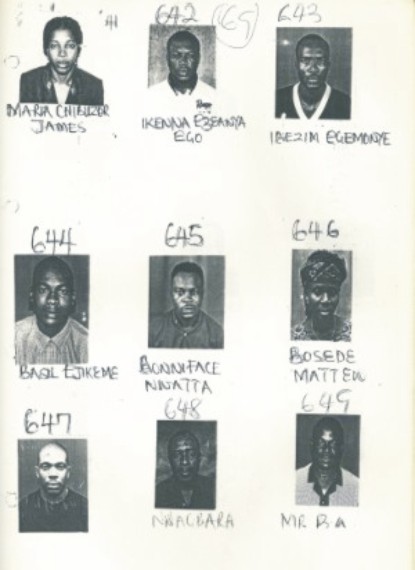 642 643
MARIA CHIBUZOR
JAMES
IKENNA EZEANYA
EGO
IBEZIM EGEMONYE
644 645 646
BASIL EJIKEME
BONNIFACE
NWATTA
BOSEDE
MATTEW
647 648 649
MR BA